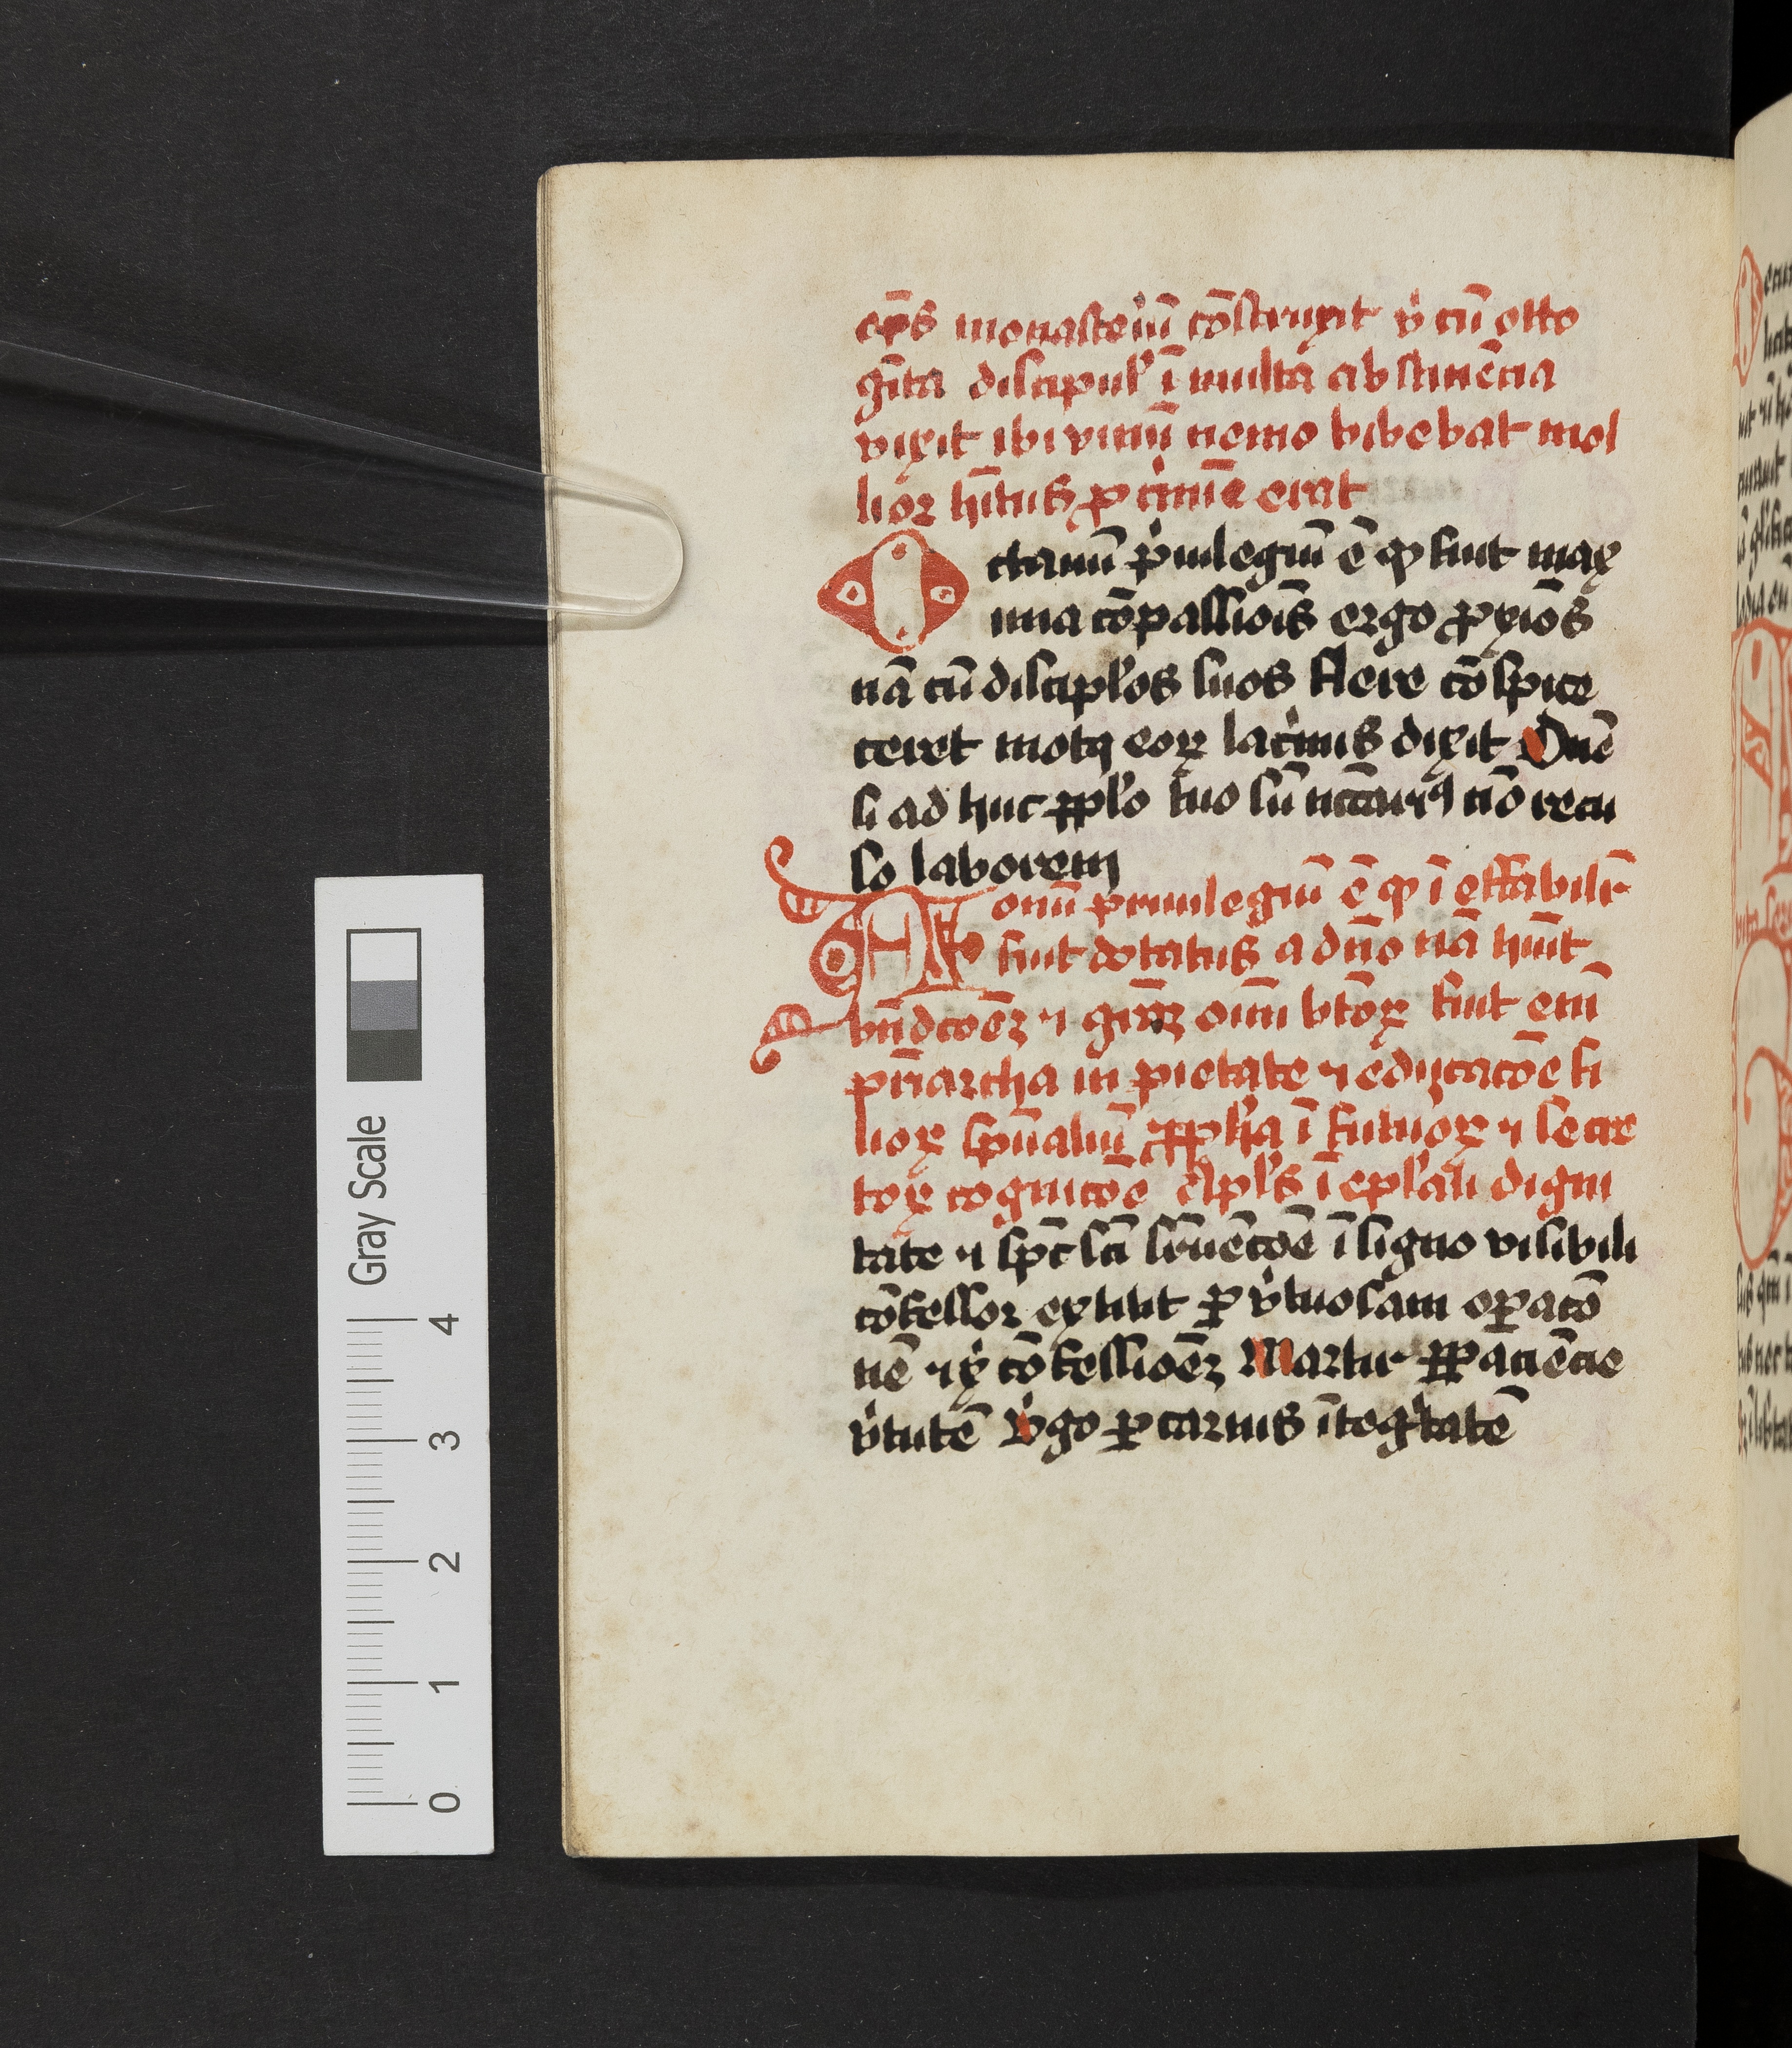 ep̄s monasteīu cōstruxit v̇ cū octo
gīta discipul' ī multa abstinēcia
vixit ibi vinū nemo bibebat mol
lior hītus ꝓ crīmīe erat
Octauū p̄uilegiū ē ꝙ fuit max
ima cōpassiōis ergo ꝓxīos
nā cū discipl'os suos flere cōspice
ceret motꝰ eoꝝ lacrimis dixit Dn̄e
si ad huc ppl'o tuo sū nccāriꝰ nō recu
so laborem
Nonū priuilegiū ē ꝙ ī effabilr̄
fuit dotatus a dn̄o nā hūit
bn̄dcōeꝫ ⁊ grāꝝ oīm btōꝝ fuit em̄
pr̄iarcha in pietate ⁊ educacōe fi
lioꝝ spūaliū ꝓph'a ī futuroꝝ ⁊ secre
toꝝ cognicōe Apl's ī epl'ali digni
tate ⁊ spc̄ sci sūuencōe ī signo visibili
cōfessor extitit ꝑ v̇tuosam oꝑacō
nē ⁊ xᷓ cōfessioēꝫ Martir ꝑ pacīēcie
v̇tutē v̇go ꝑ carnis ītegitatē
Gray Scale
4
3
2
1
0